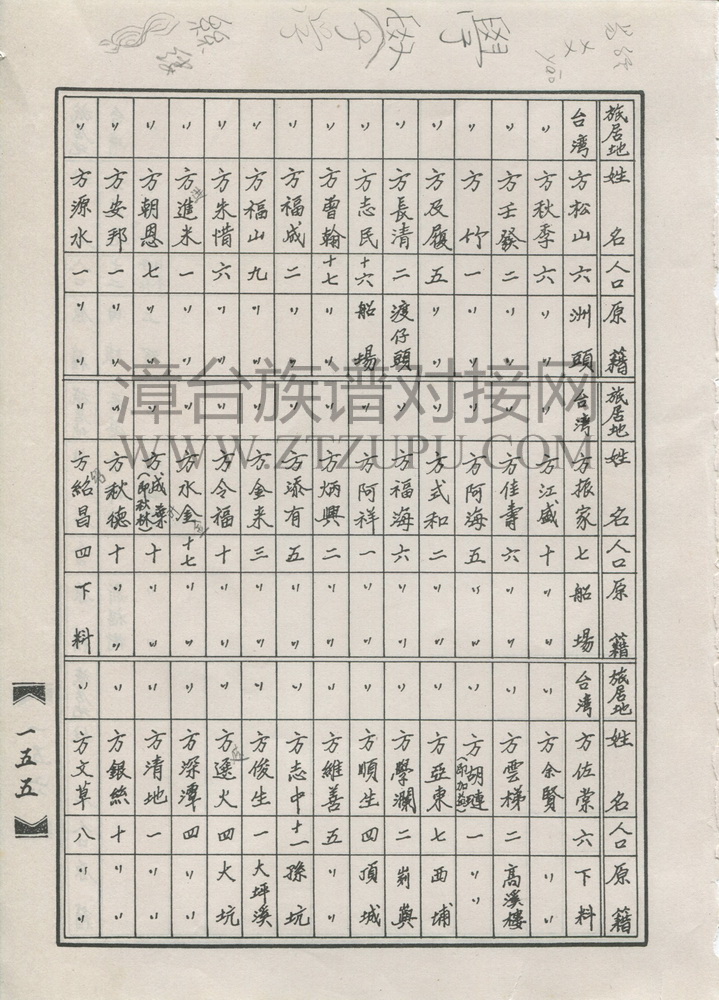 旅居地 姓名 人口 原籍
台湾 方松山 六 洲頭
〃 方秋季 六 〃 〃
〃 方壬發 二 〃 〃
〃 方竹 一 〃 〃
〃 方及履 五 〃 〃
〃 方長清 二 渡仔頭
〃 方志民 十六 船場
〃 方曹翰 十七 〃 〃
〃 方福成 二 〃 〃
〃 方福山 九 〃 〃
〃 方朱惜 六 〃 〃
〃 方進米 一 〃 〃
〃 方朝恩 七 〃 〃
〃 方安邦 一 〃 〃
〃 方源水 一 〃 〃
旅居地 姓名 人口 原籍
台湾 方振家 七 船場
〃 方江盛 十 〃 〃
〃 方佳壽 六 〃 〃
〃 方阿海 五 〃 〃
〃 方式和 二 〃 〃
〃 方福海 六 〃 〃
〃 方阿祥 一 〃 〃
〃 方炳興 二 〃 〃
〃 方添有 五 〃 〃
〃 方金来 三 〃 〃
〃 方令福 十 〃 〃
〃 方水金 十七 〃 〃
〃 方成葉(即秋林) 十 〃 〃
〃 方秋德 十 〃 〃
〃 方紹昌 四 下料
旅居地 姓名 人口 原籍
台湾 方佐棠 六 下料
〃 方余賢 〃 〃
〃 方雲梯 二 高溪樓
〃 方胡璉 一 〃 〃
〃 方亞東 七 西埔
〃 方學瀾 二
〃 方順生 四 頂城
〃 方維善 五 〃 〃
〃 方志中 十一 孫坑
〃 方俊生 一 大坪溪
〃 方火 四 大坑
〃 方深潭 四 〃 〃
〃 方清地 一 〃 〃
〃 方銀絲 十 〃 〃
〃 方文草 八 〃 〃
一五五
漳台族谱对接网
WWW.ZTZUPU.COM